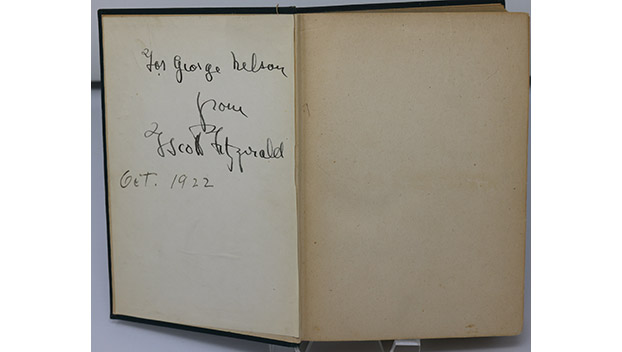 For George Nelson
from
F Scott Fitzgerald
Oct. 1922